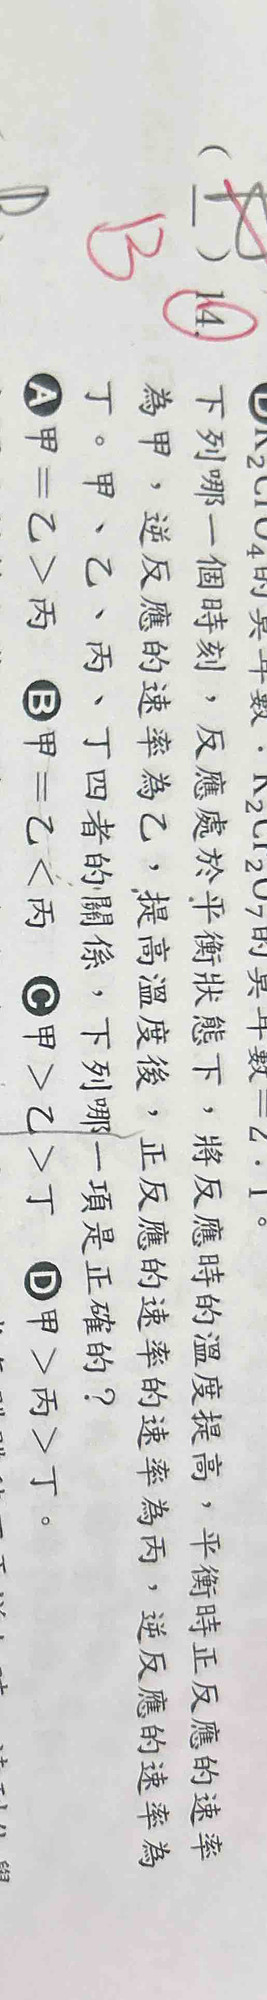 D K₂CrO₄的莫耳數：K₂Cr₂O₇的莫耳數＝2：1。
( ) 14. 下列哪一個時刻，反應處於平衡狀態下，將反應時的溫度提高，平衡時正反應的速率
為甲，逆反應的速率為乙，提高溫度後，正反應的速率的速率為丙，逆反應的速率為
丁。甲、乙、丙、丁四者的關係，下列哪一項是正確的？
B
A甲＝乙＞丙 B甲＝乙＜丙 C甲＞乙＞丁 D甲＞丙＞丁。
D